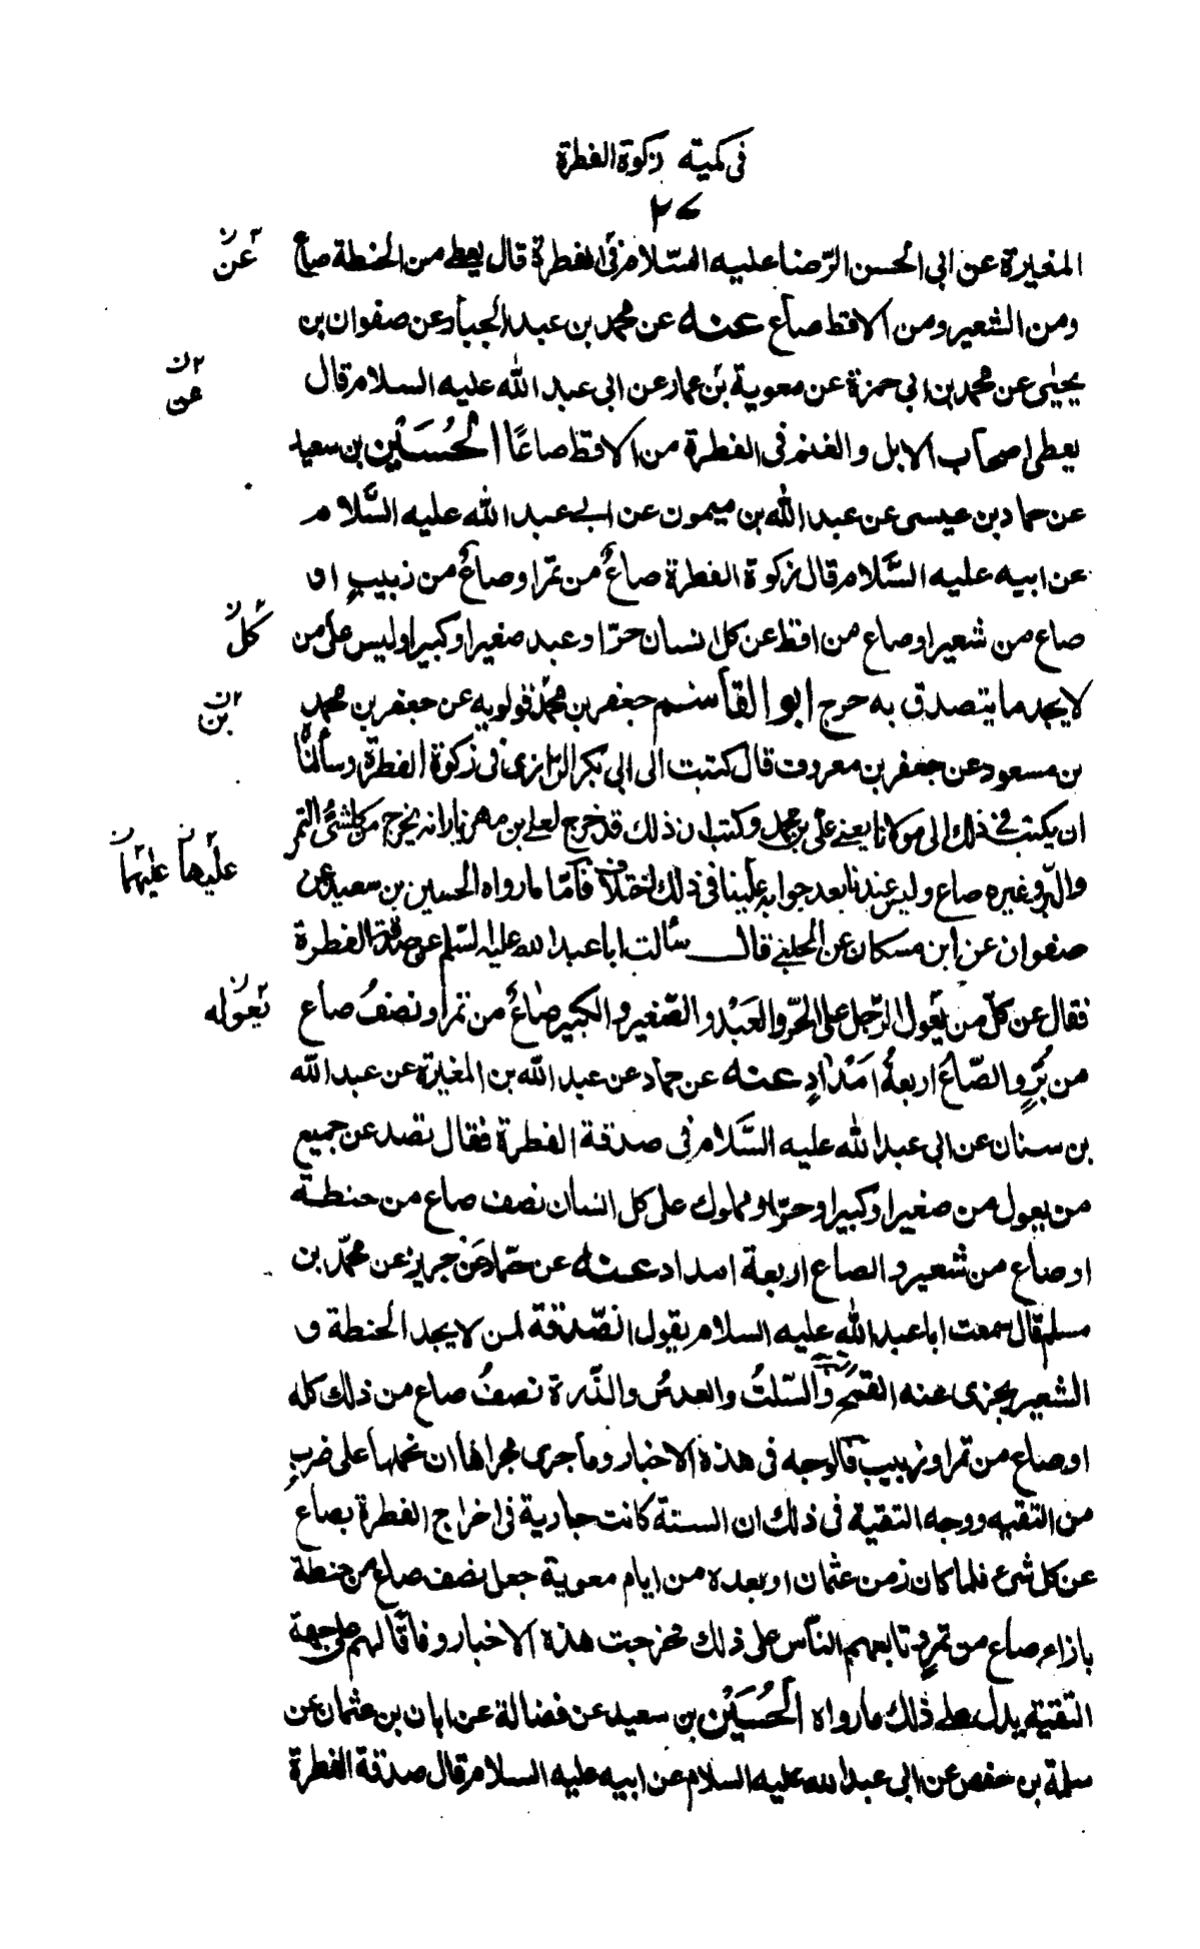 في كمية زكوة الفطرة
٢٧
المغيرة عن ابي الحسن الرّضا عليه السّلام في الفطرة قال يعطى من الحنطة صاع
عن
ومن الشعير ومن الاقط صاع عنه عن محمد بن عبد الجبار عن صفوان بن
يحيى عن محمد بن ابي حمزة عن معوية بن عمار عن ابي عبد الله عليه السلام قال
عن
يعطي اصحاب الابل والغنم في الفطرة من الاقط صاعًا الحُسَيْن بن سعيد
عن حماد بن عيسى عن عبد الله بن ميمون عن ابي عبد الله عليه السَّلام
عن ابيه عليه السَّلام قال زكوة الفطرة صاعٌ من تمر او صاعٌ من زبيبٍ او
صاع من شعير او صاع من اقط عن كل انسان حرّ او عبد صغير او كبير وليس على من
كُل
لا يجد ما يتصدق به حرج ابو القاسم جعفر بن محمد قولويه عن جعفر بن محمد
بن
بن مسعود عن جعفر بن معروف قال كتبت الى ابي بكر الرازي في زكوة الفطرة وسألنا
ان يكتب في ذلك الى مولانا يعني علي بن محمد وكتب ان ذلك قد خرج لعلي بن مهزيار انه يخرج من كل شئ التمر
والبرّ وغيره صاع وليس عندنا بعد جوابه علينا في ذلك اختلاف فأمّا ما رواه الحسين بن سعيد عن
عليها عليهما
صفوان عن ابن مسكان عن الحلبي قال سألت ابا عبد الله عليه السلم عن صدقة الفطرة
فقال عن كلّ من يَعول الرّجل على الحرّ والعَبْد والصّغير والكبير صاعٌ من تمر او نصفُ صاع
تعوله
من بُرٍّ والصّاعُ اربعةُ امْدَادٍ عنه عن حماد عن عبد الله بن المغيرة عن عبد الله
بن سنان عن ابي عبد الله عليه السَّلام في صدقة الفطرة فقال تصد عن جميع
من يعول من صغير او كبير او حرّ او مملوك على كل انسان نصف صاع من حنطة
او صاع من شعير والصاع اربعة امداد عنه عن حمّاد عن حريز عن محمّد بن
مسلم قال سمعت ابا عبد الله عليه السلام يقول الصّدقة لمن لا يجد الحنطة و
الشعير يجزى عنه القمح والسّلتُ والعدسُ والذّرة نصفُ صاع من ذلك كله
او صاع من تمر او زبيب فالوجه في هذه الاخبار وما جرى مجراها ان نحملها على ضربٍ
من التقيه ووجه التقية في ذلك ان السنة كانت جارية في اخراج الفطرة بصاع
عن كل شئ فلما كان زمن عثمان او بعده من ايام معوية جعل نصف صاع من حنطة
بازاء صاع من تمرٍ وتابعهم النّاس على ذلك فخرجت هذه الاخبار وفاقًا لهم على جهة
التقية يدل على ذلك ما رواه الحُسَيْن بن سعيد عن فضالة عن ابان بن عثمان عن
سلمة بن حفص عن ابي عبد الله عليه السلام عن ابيه عليه السلام قال صدقة الفطرة